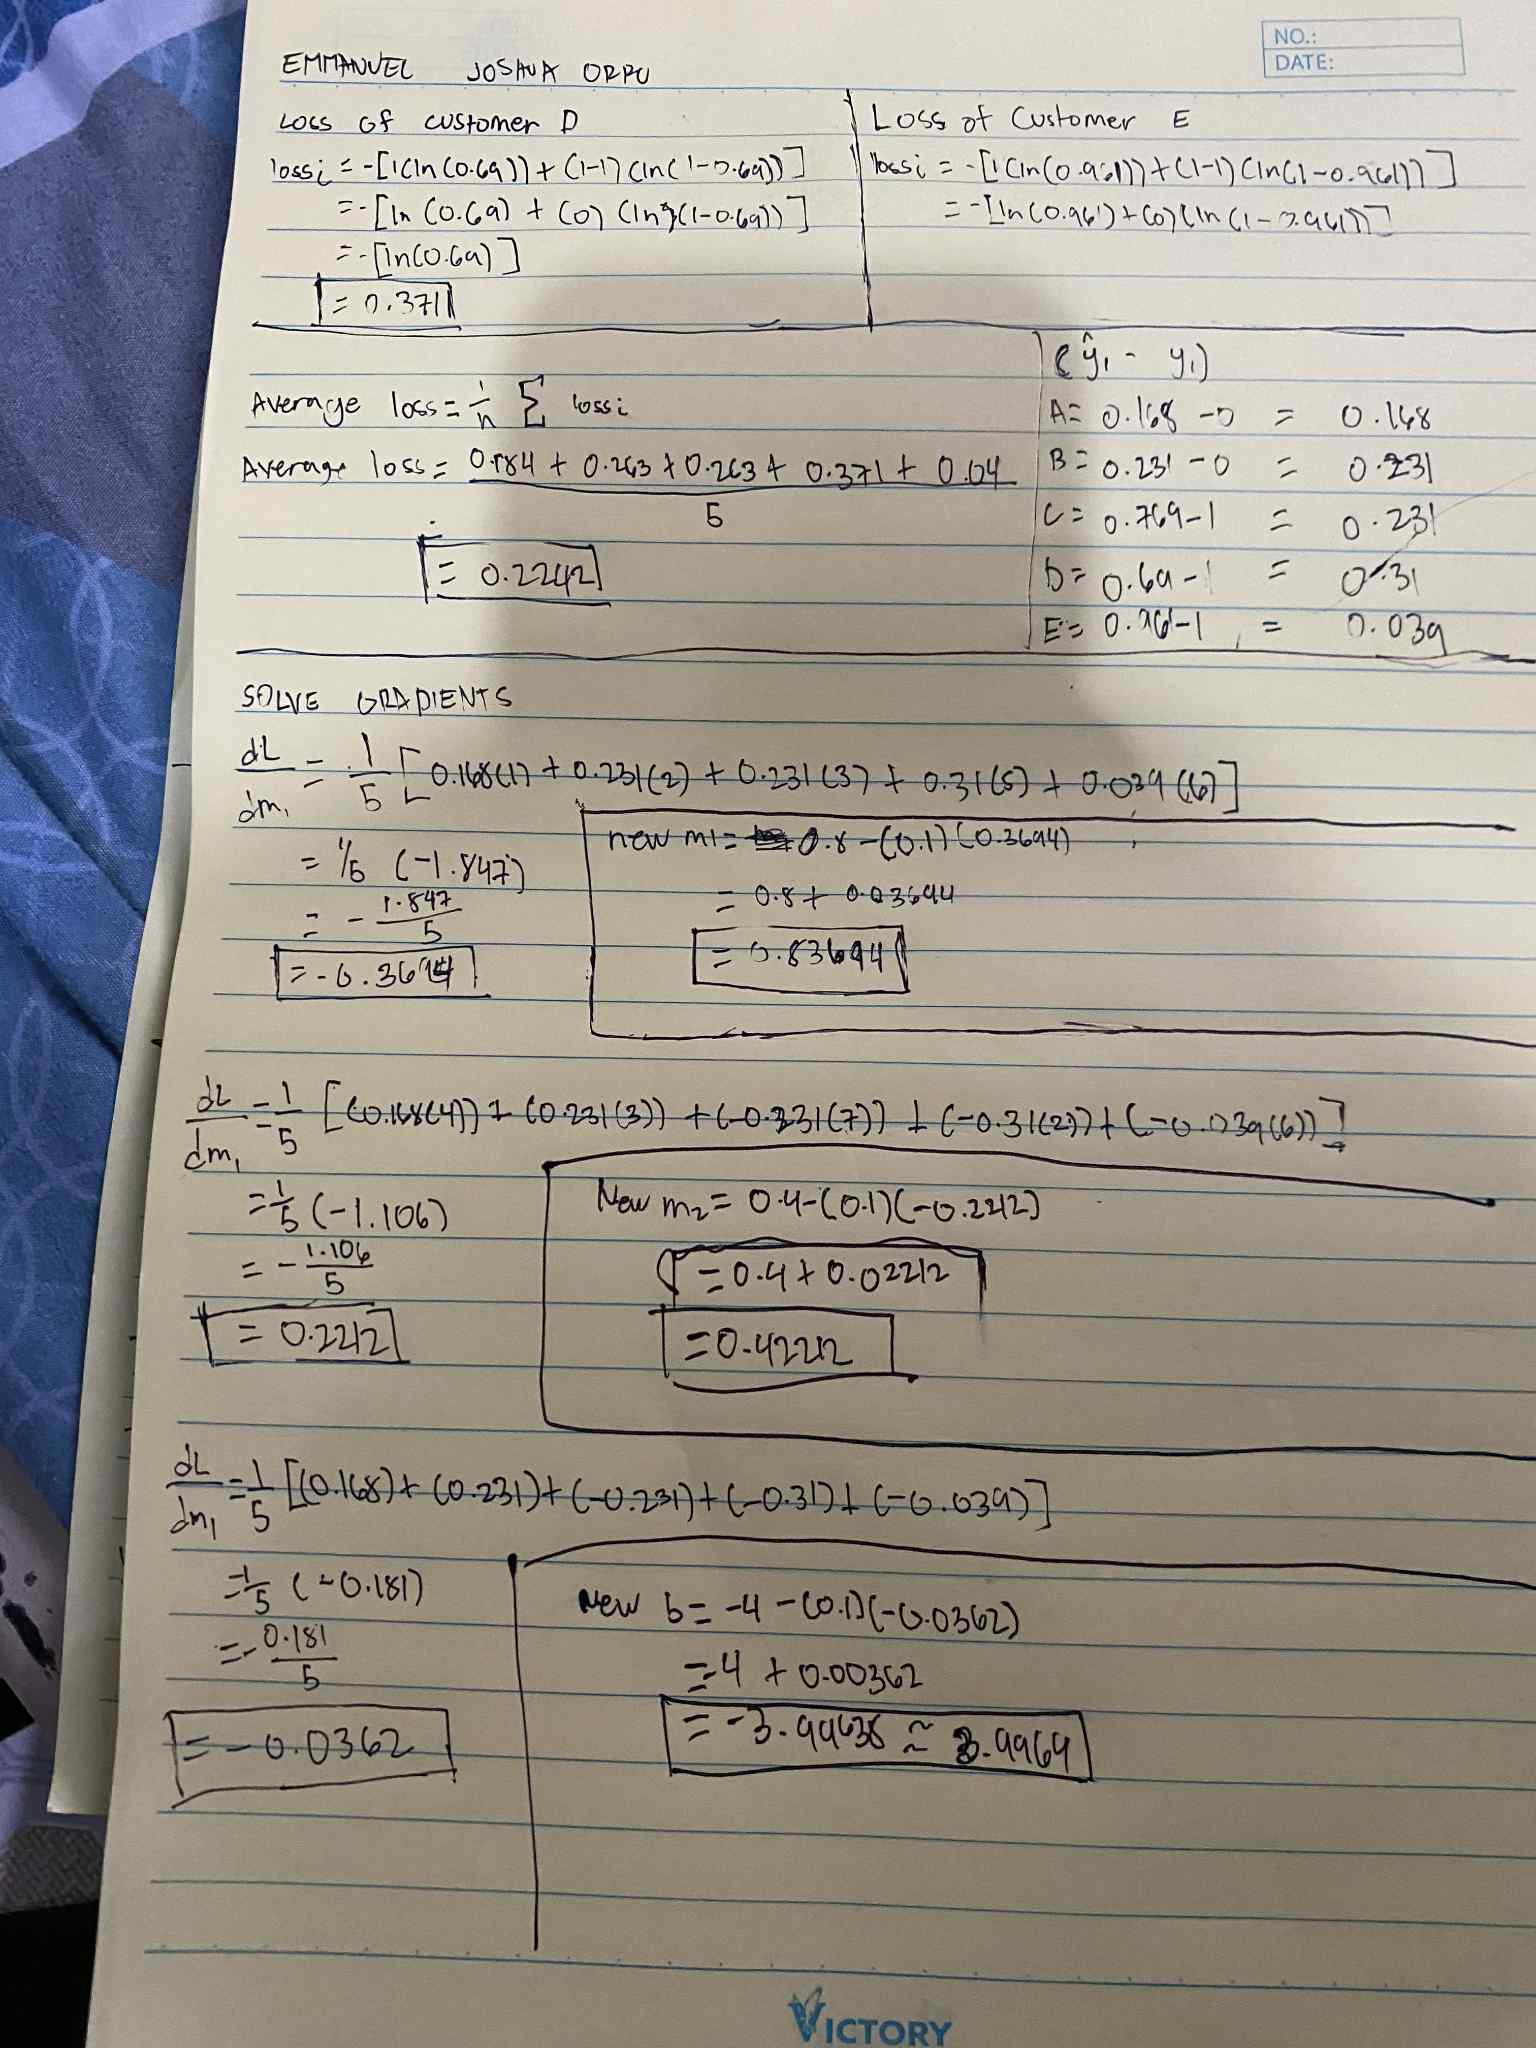 NO.:
DATE:
EMMANUEL JOSHUA ORPU
Loss of customer D
lossi = -[1(ln(0.69)) + (1-1)(ln(1-0.69))]
= -[ln(0.69) + (0)(ln(1-0.69))]
= -[ln(0.69)]
= 0.371
Loss of Customer E
lossi = -[1(ln(0.961)) + (1-1)(ln(1-0.961))]
= -[ln(0.961) + (0)(ln(1-0.961))]
Average loss = 1/n Σ lossi
Average loss = 0.184 + 0.263 + 0.263 + 0.371 + 0.04
5
= 0.2242
(ŷ₁ - y₁)
A = 0.168 - 0 = 0.168
B = 0.231 - 0 = 0.231
C = 0.769 - 1 = 0.231
D = 0.69 - 1 = 0.31
E = 0.961 - 1 = 0.039
SOLVE GRADIENTS
dL/dm₁ = 1/5 [0.168(1) + 0.231(2) + 0.231(3) + 0.31(5) + 0.039(6)]
= 1/5 (-1.847)
= - 1.847/5
= -0.3694
new m1 = 0.8 - (0.1)(0.3694)
= 0.8 + 0.03694
= 0.83694
dL/dm₁ = 1/5 [(0.168(4)) + (0.231(3)) + (-0.231(7)) + (-0.31(2)) + (-0.039(6))]
= 1/5 (-1.106)
= - 1.106/5
= 0.2212
New m₂ = 0.4 - (0.1)(-0.2212)
= 0.4 + 0.02212
= 0.42212
dL/dm₁ = 1/5 [(0.168) + (0.231) + (-0.231) + (-0.31) + (-0.039)]
= 1/5 (-0.181)
= - 0.181/5
= -0.0362
New b = -4 - (0.1)(-0.0362)
= -4 + 0.00362
= -3.99638 ≈ 3.9964
VICTORY